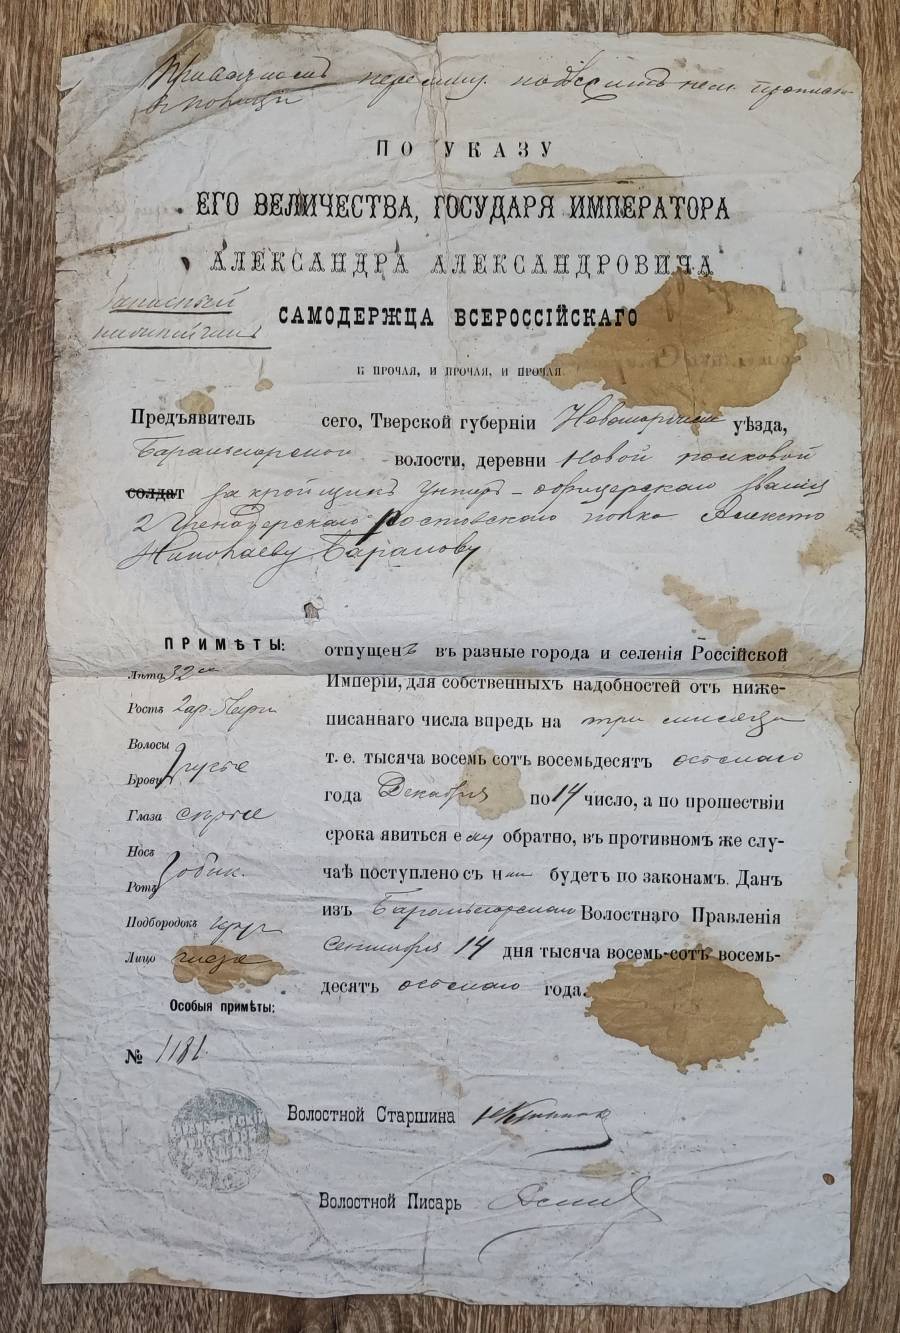 ПО УКАЗУ
ЕГО ВЕЛИЧЕСТВА, ГОСУДАРЯ ИМПЕРАТОРА
АЛЕКСАНДРА АЛЕКСАНДРОВИЧА
САМОДЕРЖЦА ВСЕРОССІЙСКАГО
И ПРОЧАЯ, И ПРОЧАЯ, И ПРОЧАЯ
Запасный
Предъявитель сего, Тверской губерніи Новоторжск уѣзда,
волости, деревни Новой
солдат унтеръ-офицерскаго званія
2 Гренадерскаго Ростовскаго полка
Николаеву Баранову
ПРИМѢТЫ:
Лѣта 32
Ростъ 2 ар.
Волосы
Брови русые
Глаза сѣрые
Носъ
Ротъ обык.
Подбородокъ кругл
Лицо чистое
Особыя примѣты:
№ 1181
отпущенъ въ разные города и селенія Россійской
Имперіи, для собственныхъ надобностей отъ ниже-
писаннаго числа впредь на три мѣсяца
т. е. тысяча восемь сотъ восемьдесятъ осьмаго
года Декабря по 14 число, а по прошествіи
срока явиться ему обратно, въ противномъ же слу-
чаѣ поступлено съ нимъ будетъ по законамъ. Данъ
изъ Волостнаго Правленія
Сентября 14 дня тысяча восемь-сотъ восемь-
десятъ осьмаго года.
Волостной Старшина
Волостной Писарь